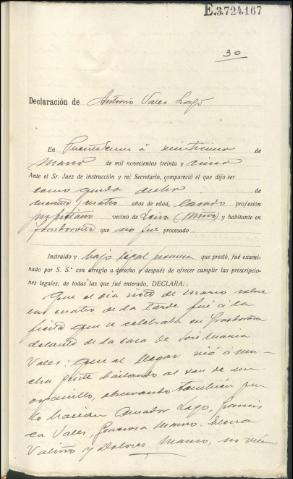 E.3.724.167
30
Declaración de Antonio Vales Lago
En Puentedeume á veintiuno de
Marzo de mil novecientos treinta y cinco
Ante el Sr. Juez de instrucción y mi Secretario, compareció el que dijo ser
como queda dicho de
cuarenta y cuatro años de edad, casado profesión
propietario vecino de (Miño) y habitante en
que no fue procesado
Instruído y bajo legal que prestó, fué examinado
por S. S.ª con arreglo a derecho y después de ofrecer cumplir las prescripciones
legales, de todas las que fué enterado, DECLARA:
Que el día siete de Marzo sobre
las cuatro de la tarde fué á la
fiesta que se celebraba en
delante de la casa de José María
Vales; que al llegar vió á mu-
cha gente bailando al son de un
organillo, observando también que
lo hacían Amador Lago, Francis-
ca Vales, Generosa Mauro, Elena
Valiño y Dolores Mauro, no